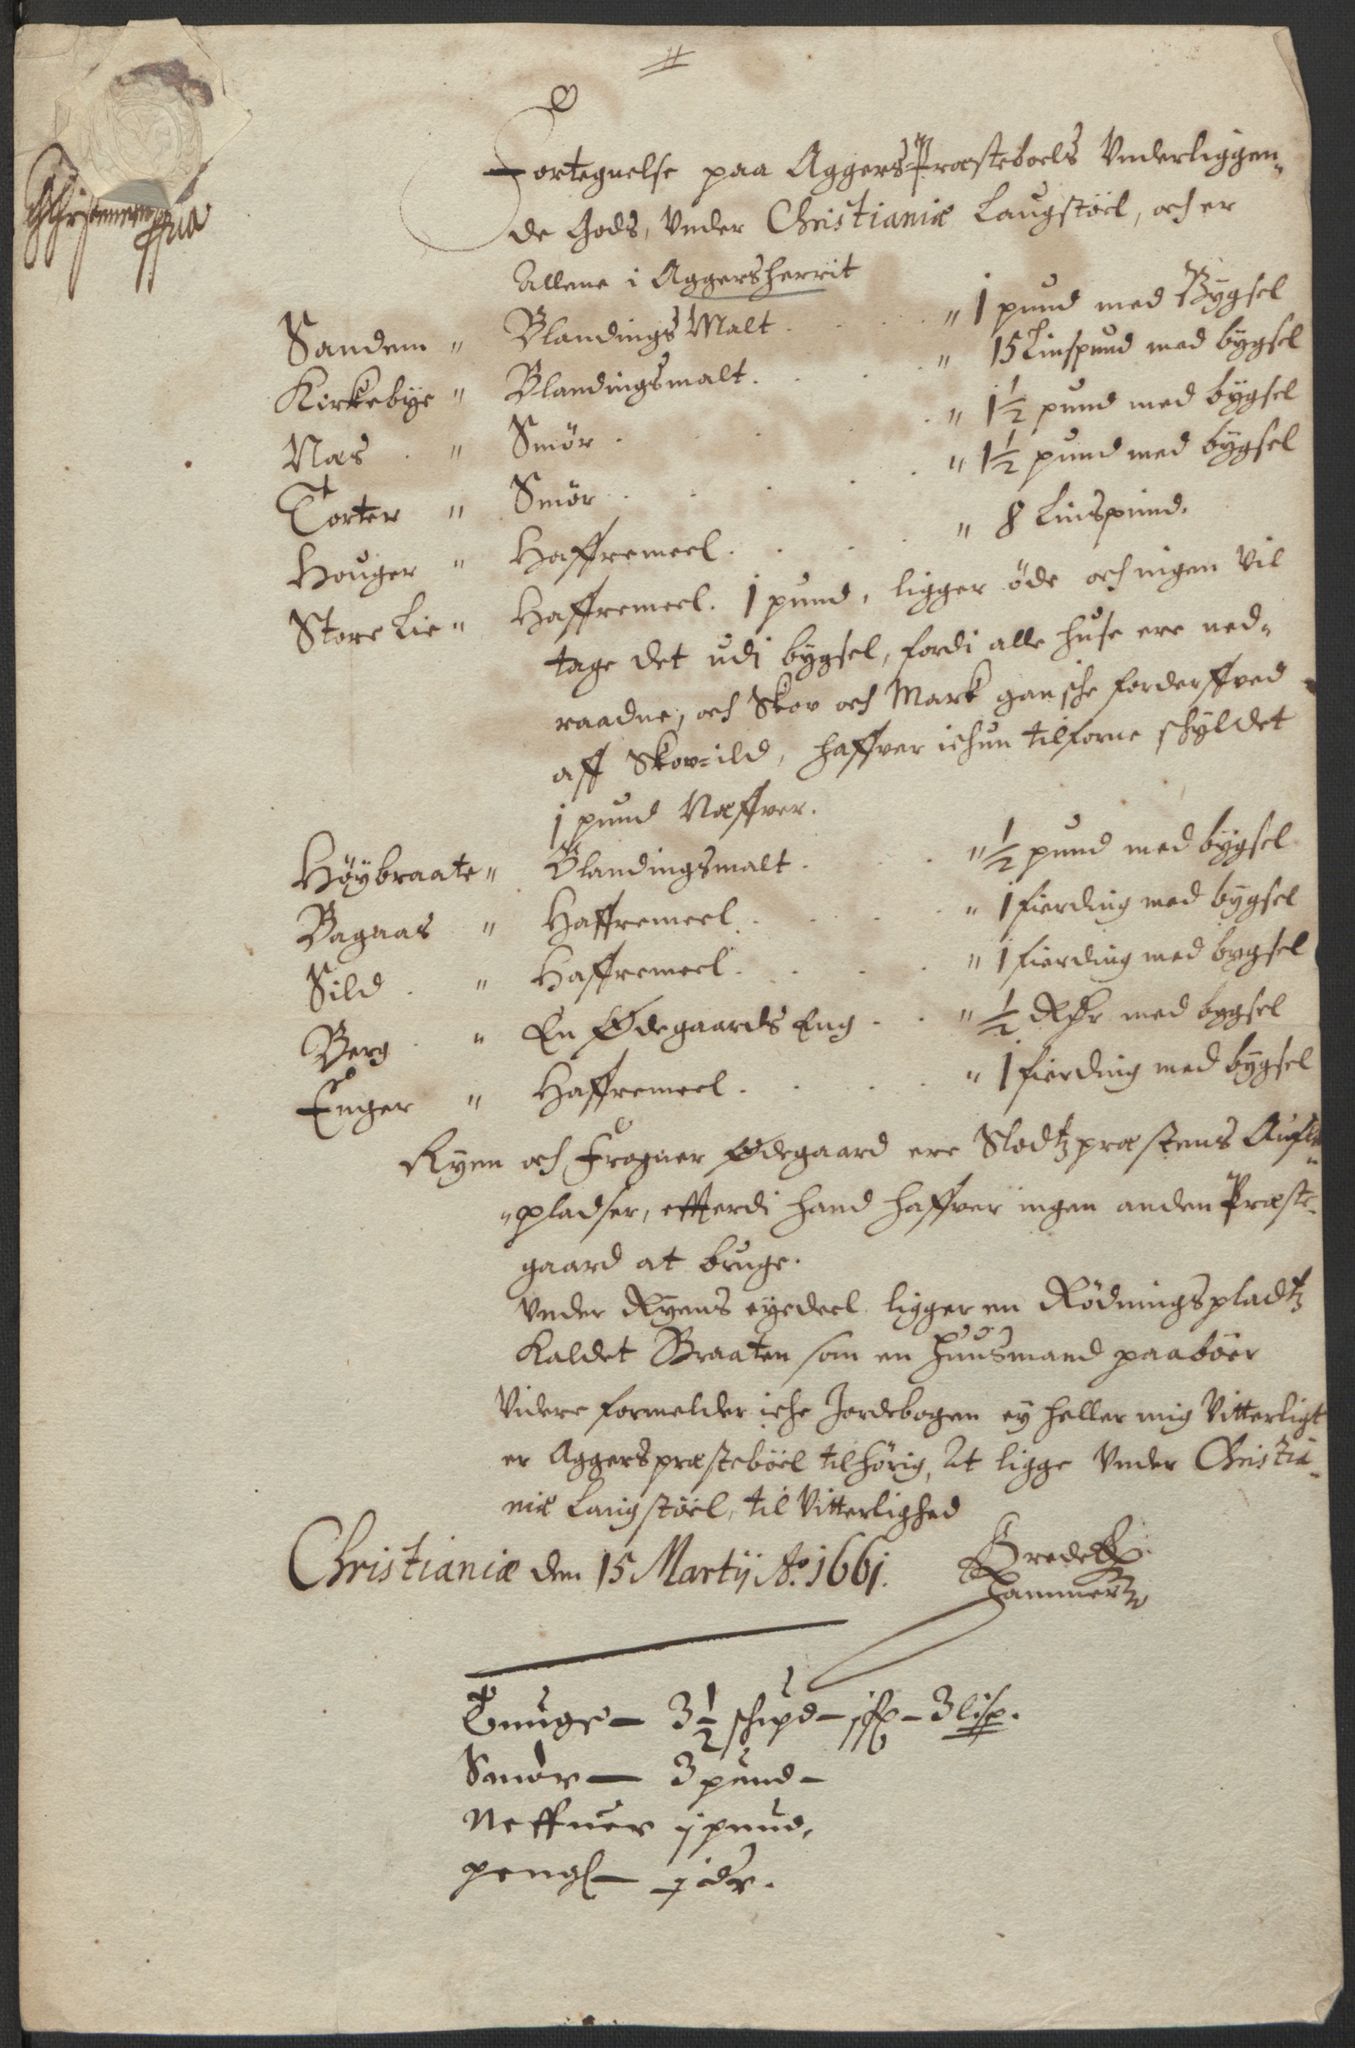 Fortegnelse paa Aggers Præsteboels Underliggen-
de Gods, Under Christianiæ Laugstöel, och er
Allene i Aggersherrit
Sandem " Blandings Malt . . . " 1 pund med Bygsel
Kirkebye " Blandingsmalt . . . " 15 Linspund med bygsel
Næs . " Smör . . . " 1½ pund med bygsel
Torter " Smör . . . " 1½ pund med bygsel
Houger " Haffremeel . . . " 8 Linspund.
Store Lie " Haffremeel. 1 pund, ligger öde och ingen vil
tage det udj bygsel, fordi alle huse ere ned-
raadne, och Skov och Mark gansche forderffved
aff Skov-ild, haffver ichun tilforne schyldet
1 pund Næffver.
Höybraate " Blandingsmalt . . . " ½ pund med bygsel
Bagaas " Haffremeel . . . " 1 fierding med bygsel
Sild . " Haffremeel . . . " 1 fierding med bygsel
Berg . " En Ødegaards Eng . . " ½ Rdr med bygsel
Enger " Haffremeel . . . " 1 fierding med bygsel
Ryen och Frogner Ødegaard ere Slodtzpræstens Aufls-
pladser, effterdi hand haffver ingen anden Præste-
gaard at bruge.
Under Ryens eyedeel ligger en Rödningspladtz
Kaldet Braaten som en Huusmand paaböer
Videre formelder iche Jordebogen ey heller mig Vitterligt
er Aggers præsteböel tilhörig, At ligge Under Christia-
niæ Laugstöel, til Vitterlighed
Christianiæ den 15 Martij Ao. 1661.
Hammer
Tunge — 3½ schpd — — 3 lisp.
Smör — 3 pund —
Neffuer j pund.
peng — j dr.